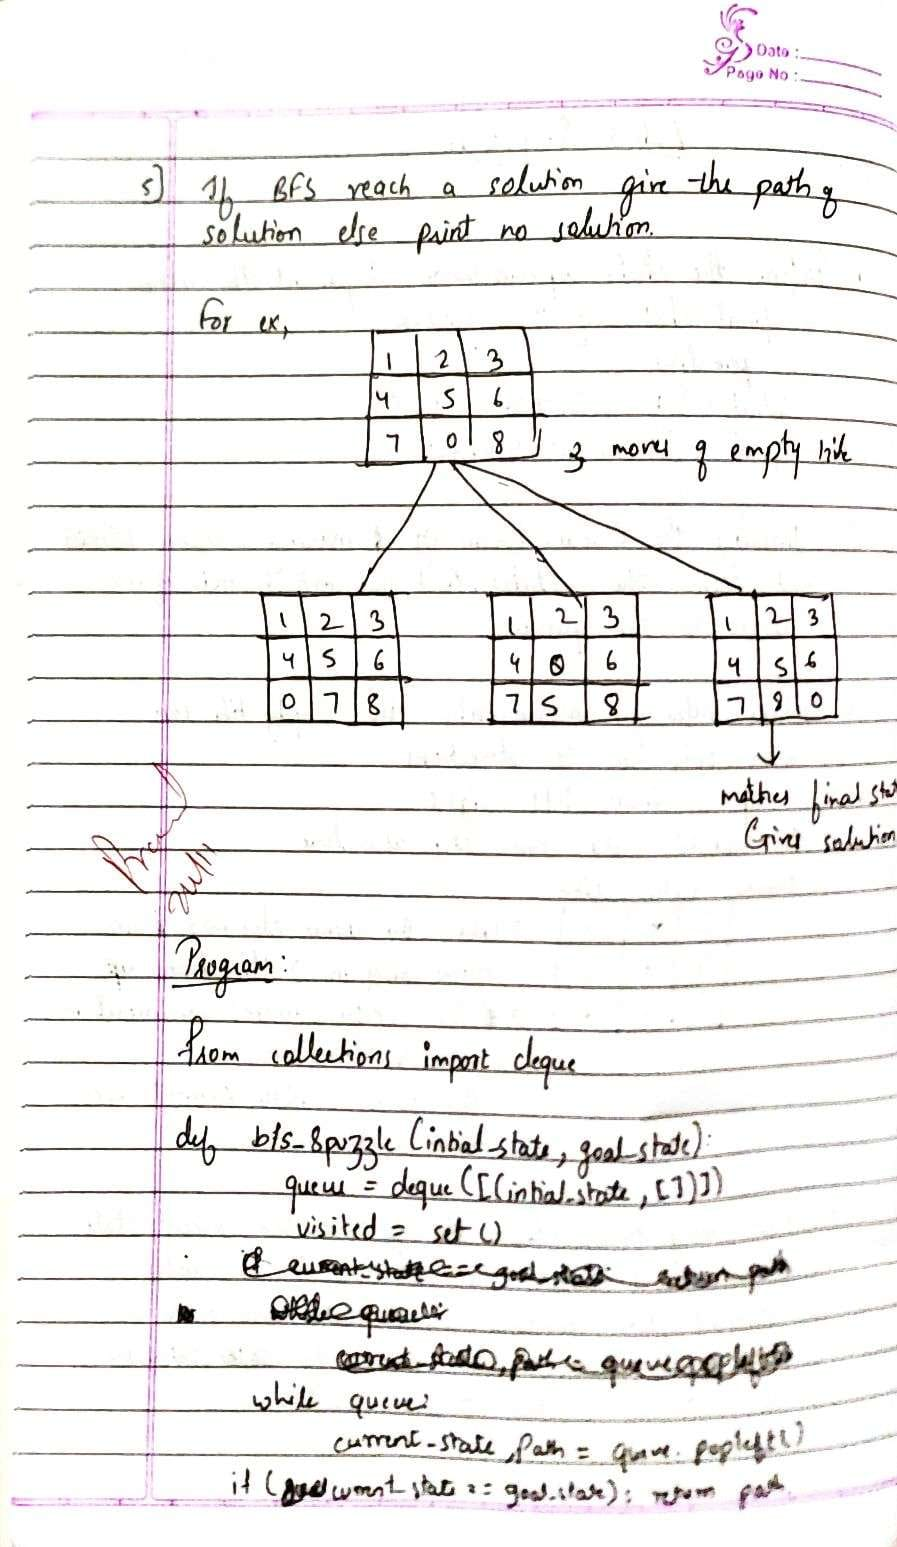 Date :
Page No :
5] If BFS reach a solution give the path of
solution else print no solution.
For ex,
1 2 3
4 5 6
7 0 8
3 moves of empty tile
1 2 3
4 5 6
0 7 8
1 2 3
4 0 6
7 5 8
1 2 3
4 5 6
7 8 0
mathes final stat
Gives solution
Program:
from collections import deque
def bfs_8puzzle (initial_state, goal_state):
queue = deque ([(initial_state, [])])
visited = set ()
if current_state == goal_state return path
while queue:
current_state, path = queue.popleft()
while queue:
current-state, path = queue. popleft()
if (current_state == goal_state): return path